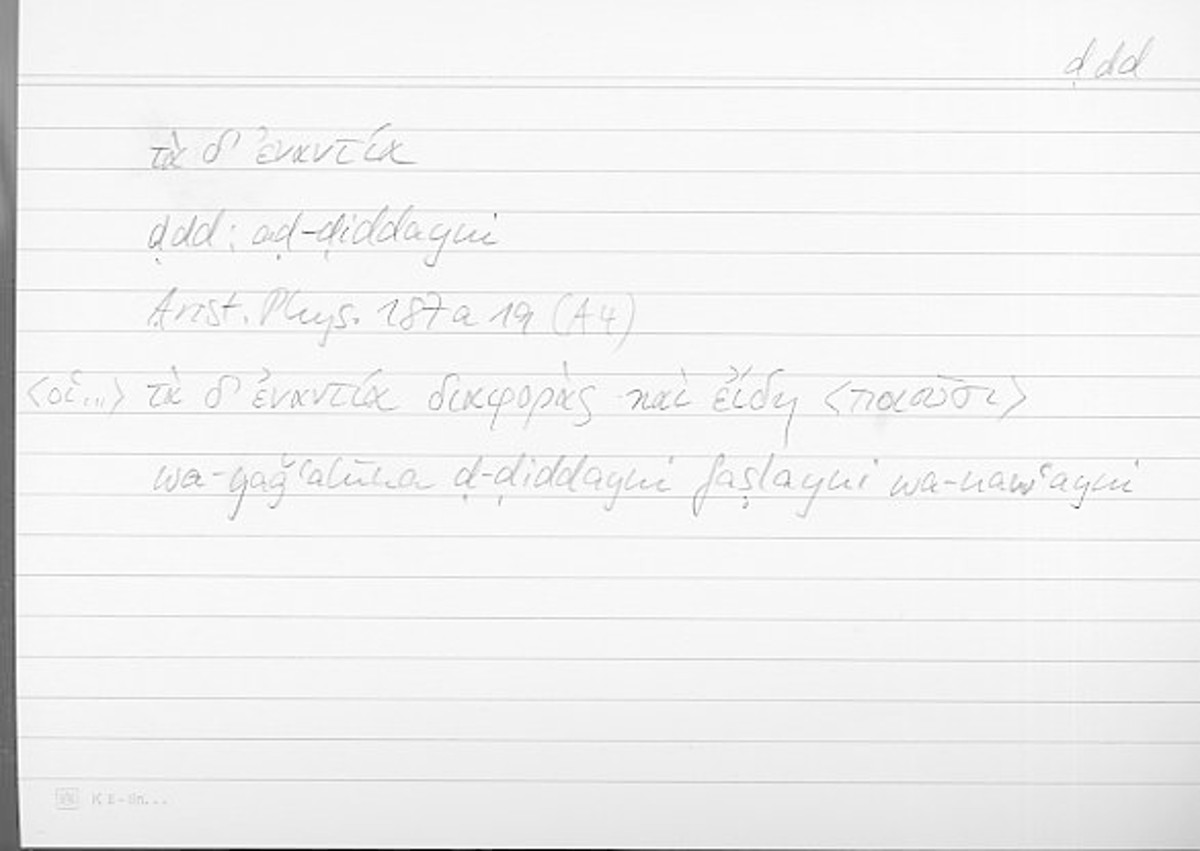 ḍdd
τὰ δ' ἐναντία
ḍdd: aḍ-ḍiddayni
Arist. Phys. 187a 19 (A4)
<οἱ...> τὰ δ' ἐναντία διαφορὰς καὶ εἴδη <ποιοῦσι>
wa-yaǧʿalūna ḍ-ḍiddayni faṣlayni wa-nawʿayni